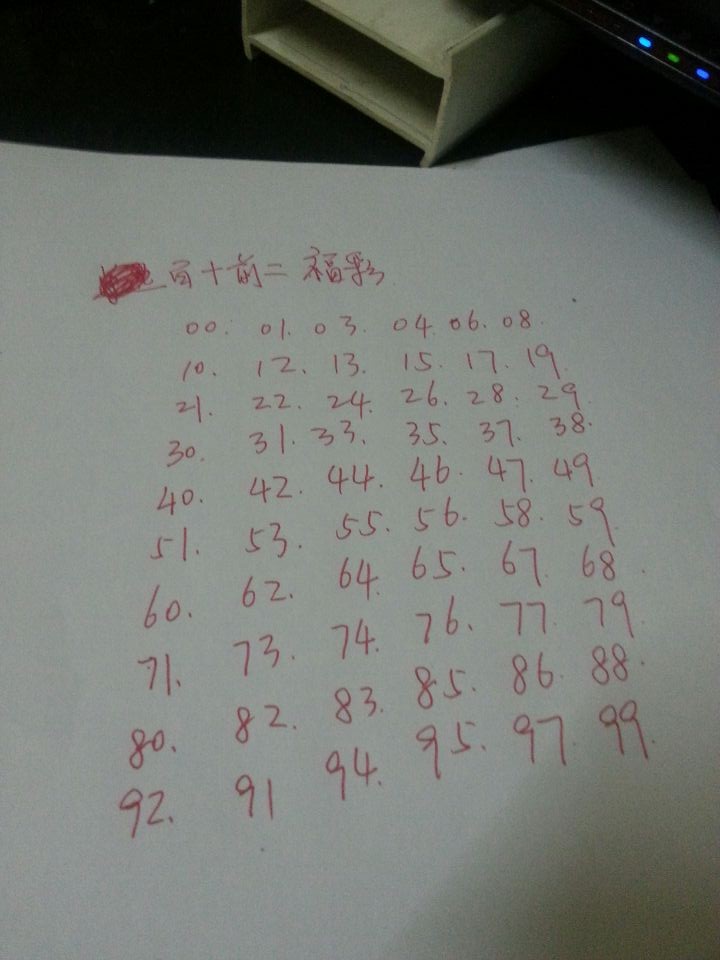 百十前二 福彩
00. 01. 03. 04. 06. 08.
10. 12. 13. 15. 17. 19.
21. 22. 24. 26. 28. 29.
30. 31. 33. 35. 37. 38.
40. 42. 44. 46. 47. 49.
51. 53. 55. 56. 58. 59.
60. 62. 64. 65. 67. 68.
71. 73. 74. 76. 77. 79.
80. 82. 83. 85. 86. 88.
92. 91 94. 95. 97. 99.